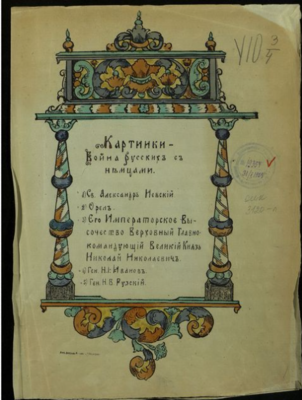 Картинки-
Война русских съ
нѣмцами.
Св. Александръ Невскій
Орелъ
Его Императорское Вы-
сочество Верховный Главно-
командующій Великій Князь
Николай Николаевичъ
Ген. Н.І. Ивановъ
Ген. Н.В. Рузскій.